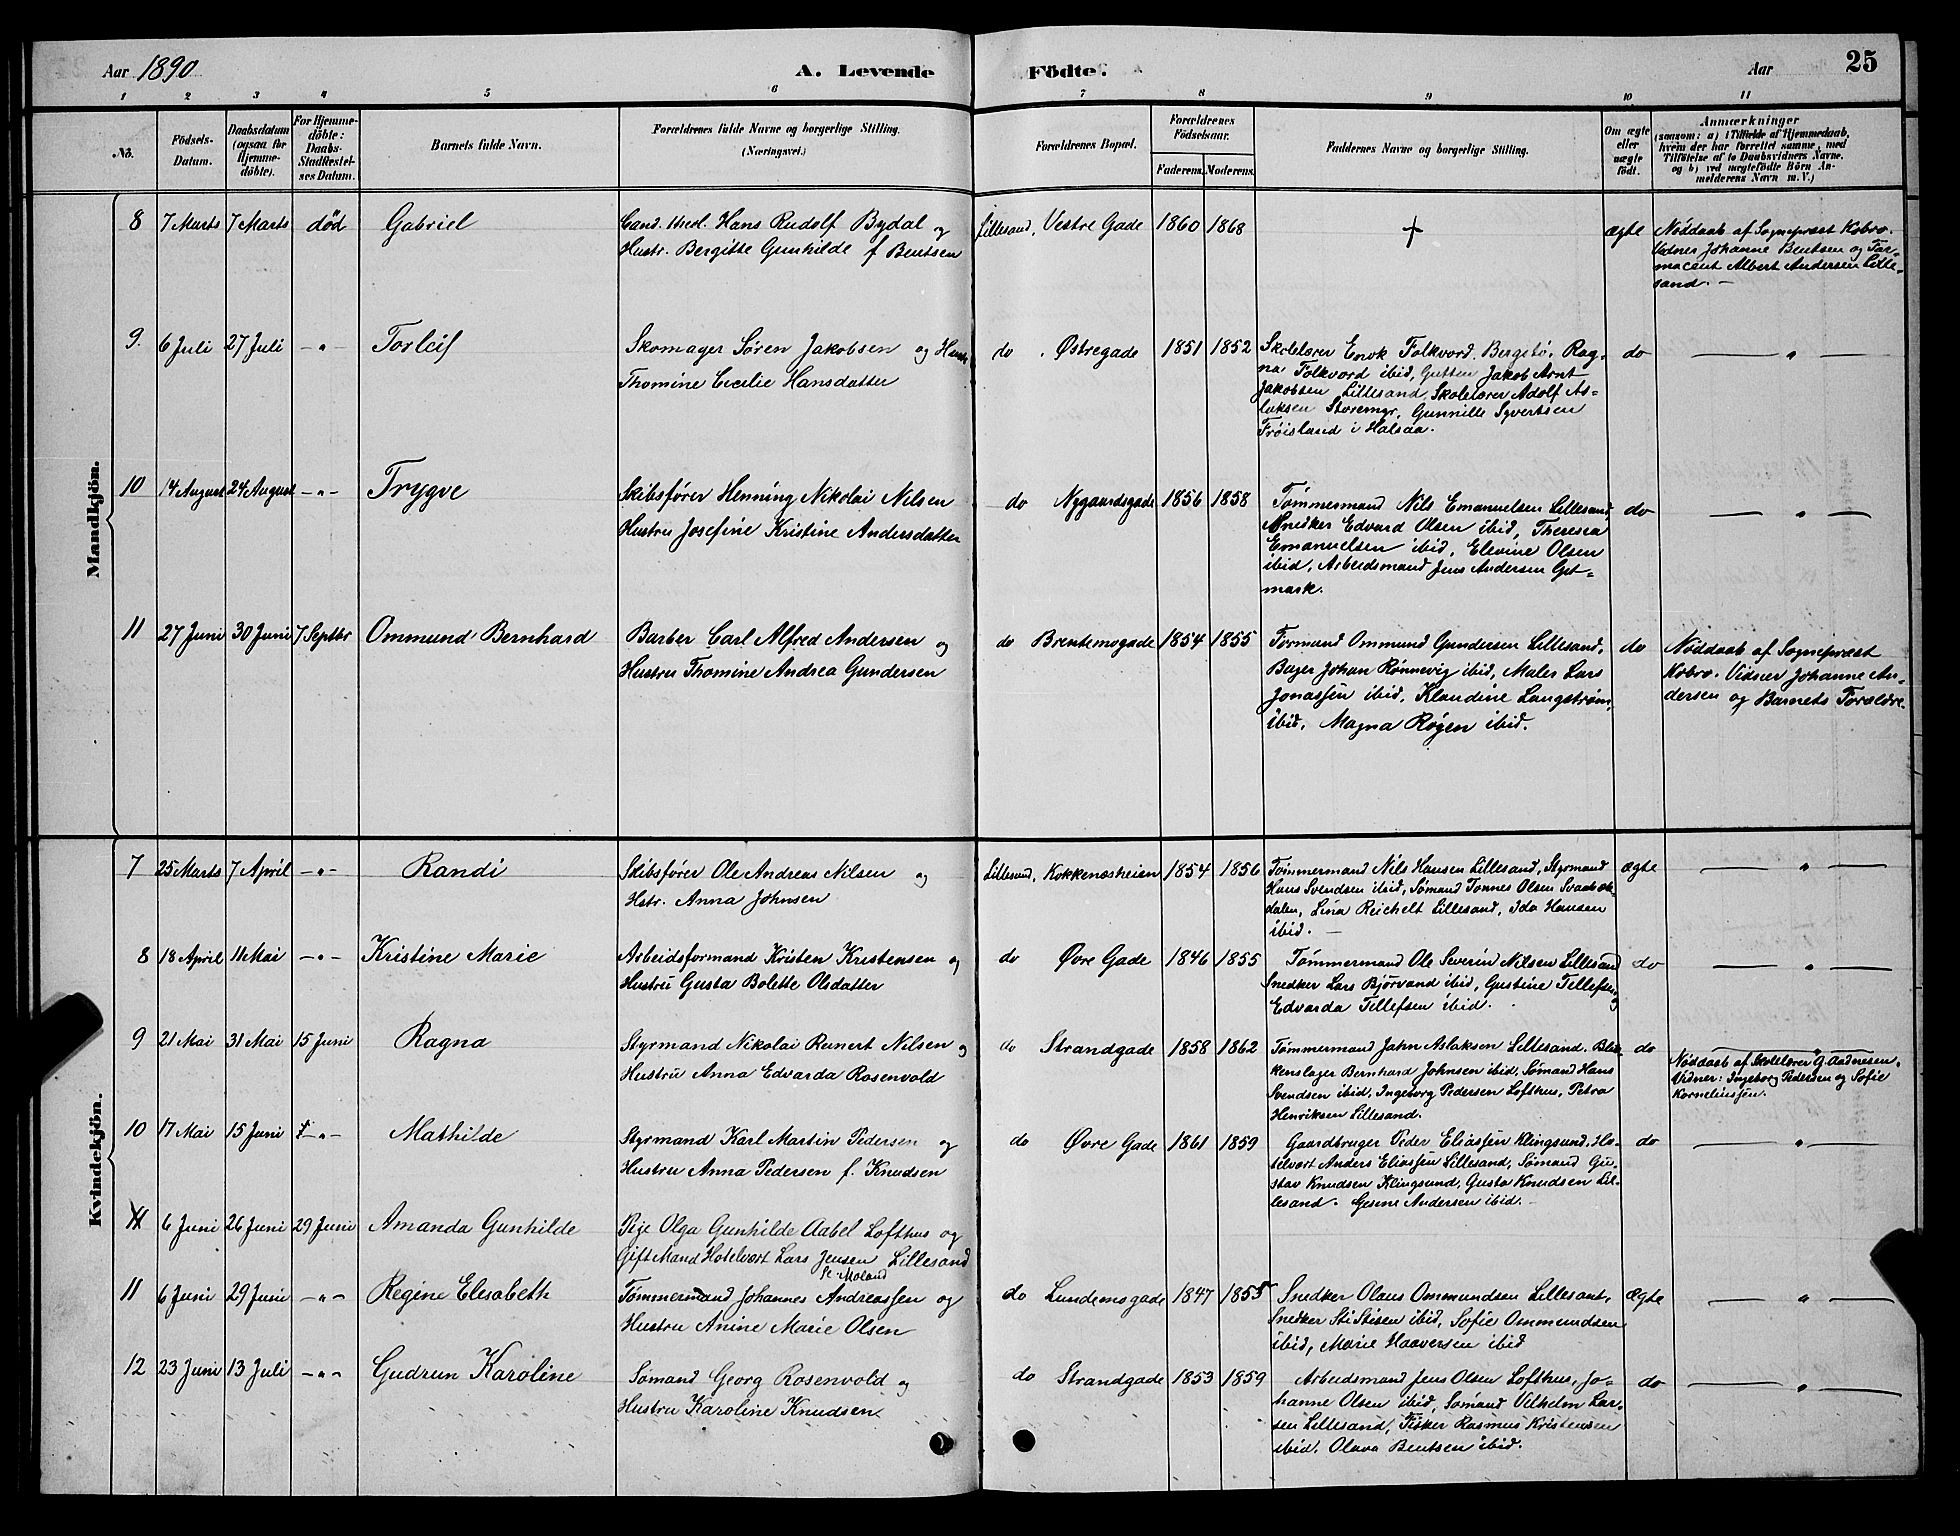 Aar 1890
A. Levende Födte.
Aar
25
1 2 3 4 5 6 7 8 9 10 11
No.
Födsels-Datum.
Daabsdatum (ogsaa for Hjemmedöbte).
For Hjemmedöbte: Daabs-Stadfæstelses Datum.
Barnets fulde Navn.
Forældrenes fulde Navne og borgerlige Stilling. (Næringsvei.)
Forældrenes Bopæl.
Forældrenes Födselsaar.
Faderens. Moderens.
Faddernes Navne og borgerlige Stilling.
Om ægte eller uægte födt.
Anmærkninger
(saasom: a) i Tilfælde af Hjemmedaab, hvem der har forrettet samme, med Tilföielse af to Daabsvidners Navne. og b) ved uægtefödte Börn Anmelderens Navn m. V.)
Mandkjön.
8 7 Marts 7 Marts død Gabriel
Cand. Med. Hans Rudolf Bydal og
Hustr. Bergitte Gunhilde f Bentsen
Lillesand, Vestre Gade 1860 1868 + ægte
Nøddaab af Sognepræst Kobro.
Vidner Johanne Bentsen og Far-
maceut Albert Andersen Lille-
sand. —
9. 6 Juli 27 Juli — " — Torleif
Skomager Søren Jakobsen og Hustr
Thomine Cecilie Hansdatter
do . Østregade 1851 1852
Skolelærer Enok Folkvord. Bergstø, Rag-
na Folkvord ibid, Gutten Jakob Arnt
Jakobsen Lillesand, Skolelærer Adolf As-
laksen Storemyr, Gunnille Syvertsen
Frøisland i Halsaa.
do — " —
10 14 August 24 August — " — Trygve
Skibsfører Henning Nikolai Nilsen
Hustru Josefine Kristine Andersdatter
do Nygaardsgade 1856 1858
Tømmermand Nils Emanuelsen Lillesand,
Snedker Edvard Olsen ibid, Theresea
Emanuelsen ibid, Elevine Olsen
ibid, Arbeidsmand Jens Andersen Gjet-
mark.
do — " —
11 27 Juni 30 Juni 7 Septbr Ommund Bernhard
Barber Carl Alfred Andersen og
Hustru Thomine Andrea Gundersen
do Brentemogade 1854 1855
Formand Ommund Gundersen Lillesand,
Bager Johan Rønnevig ibid, Maler Lars
Jonassen ibid, Klaudine Langstrøm
ibid, Magna Røgen ibid.
do
Nøddaab af Sognepræst
Kobro. Vidner Johanne An-
dersen og Barnets Forældre.
Kvindekjön.
7 25 Marts 7 April — " — Randi
Skibsfører Ole Andreas Nilsen og
Hstr. Anna Johnsen
Lillesand, Kokkenæsheien 1854 1856
Tømmermand Nils Hansen Lillesand, Styrmand
Hans Svendsen ibid, Sømand Tønnes Olsen
dalen, Lina Reichelt Lillesand, Ida Hansen
ibid. —
ægte — " —
8 18 April 11 Mai — " — Kristine Marie
Arbeidsformand Kristen Kristensen og
Hustru Gusta Bolette Olsdatter
do Øvre Gade 1846 1855
Tømmermand Ole Severin Nilsen Lillesand
Snedker Lars Bjørvand ibid, Gustine Tellefsen og
Edvarda Tellefsen ibid.
do — " —
9 21 Mai 31 Mai 15 Juni Ragna
Styrmand Nikolai Reinert Nilsen og
Hustru Anna Edvarda Rosenvold
do Strandgade 1858 1862
Tømmermand Jahn Aslaksen Lillesand, Blik-
kenslager Bernhard Johnsen ibid, Sømand Hans
Svendsen ibid, Ingeborg Pedersen Lofthus, Petra
Henriksen Lillesand.
do
Nøddaab af Skolelærer G. Aadnesen.
Vidner: Ingeborg Pedersen og Sofie
Korneliussen.
10 17 Mai 15 Juni — " — Mathilde
Styrmand Karl Martin Pedersen og
Hustru Anna Pedersen f. Knudsen
do Øvre Gade 1861 1859
Gaardbruger Peder Eliassen Klingsund, Ho-
telvært Anders Eliassen Lillesand, Sømand Gu-
stav Knudsen Klingsund, Gusta Knudsen Lil-
lesand. Gesine Andersen ibid. —
do — " —
11 6 Juni 26 Juni 29 Juni Amanda Gunhilde
Pige Olga Gunhilde Aabel Lofthus og
Gift Mand Hotelvært Lars Jensen Lillesand
11 6 Juni 29 Juni — " — Regine Elesabeth
Tømmermand Johannes Andreassen og
Hustru Anine Marie Olsen
do Lundemogade 1847 1855
Snedker Olaus Ommundsen Lillesand,
Snedker Sti Stisen ibid, Sofie Ommundsen
ibid, Marie Haaversen ibid
Ægte — " —
12 23 Juni 13 Juli — " — Gudrun Karoline
Sømand Georg Rosenvold og
Hustru Karoline Knudsen
do Strandgade 1853 1859
Arbeidsmand Jens Olsen Lofthus, Jo-
hanne Olsen ibid, Sømand Vilhelm Lar-
sen Lillesand, Fisker Rasmus Kristensen
ibid. Olava Bentsen ibid.
do — " —